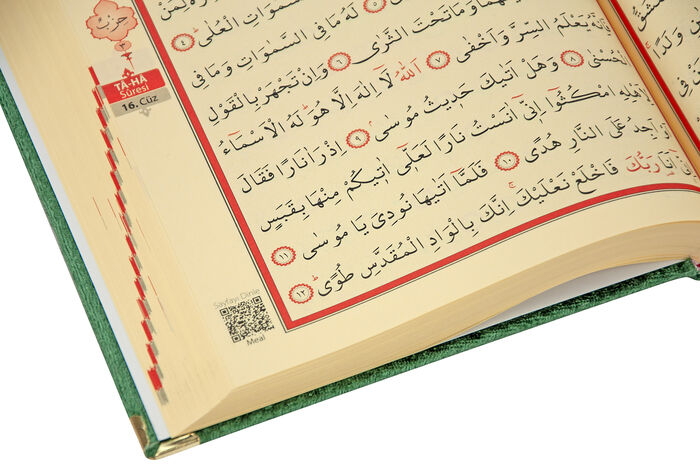 حزب
٣
TÂ-HÂ
Sûresi
16. Cüz
السَّمٰوَاتِ الْعُلٰىۜ ٤
لَهُ مَا فِي السَّمٰوَاتِ وَمَا فِي
بَيْنَهُمَا وَمَا تَحْتَ الثَّرٰى ٦ وَاِنْ تَجْهَرْ بِالْقَوْلِ
فَاِنَّهُ يَعْلَمُ السِّرَّ وَاَخْفٰى ٧ اَللّٰهُ لَٓا اِلٰهَ اِلَّا هُوَۜ لَهُ الْاَسْمَٓاءُ
الْحُسْنٰى ٨ وَهَلْ اَتٰيكَ حَد۪يثُ مُوسٰىۢ ٩ اِذْ رَاٰ نَارًا فَقَالَ
لِاَهْلِهِ امْكُثُٓوا اِنّ۪ٓي اٰنَسْتُ نَارًا لَعَلّ۪ٓي اٰت۪يكُمْ مِنْهَا بِقَبَسٍ
اَوْ اَجِدُ عَلَى النَّارِ هُدًى ١٠ فَلَمَّٓا اَتٰيهَا نُودِيَ يَا مُوسٰى ١١
اِنّ۪ٓي اَنَا۬ رَبُّكَ فَاخْلَعْ نَعْلَيْكَۚ اِنَّكَ بِالْوَادِ الْمُقَدَّسِ طُوًىۜ ١٢
Sayfayı Dinle
Meal